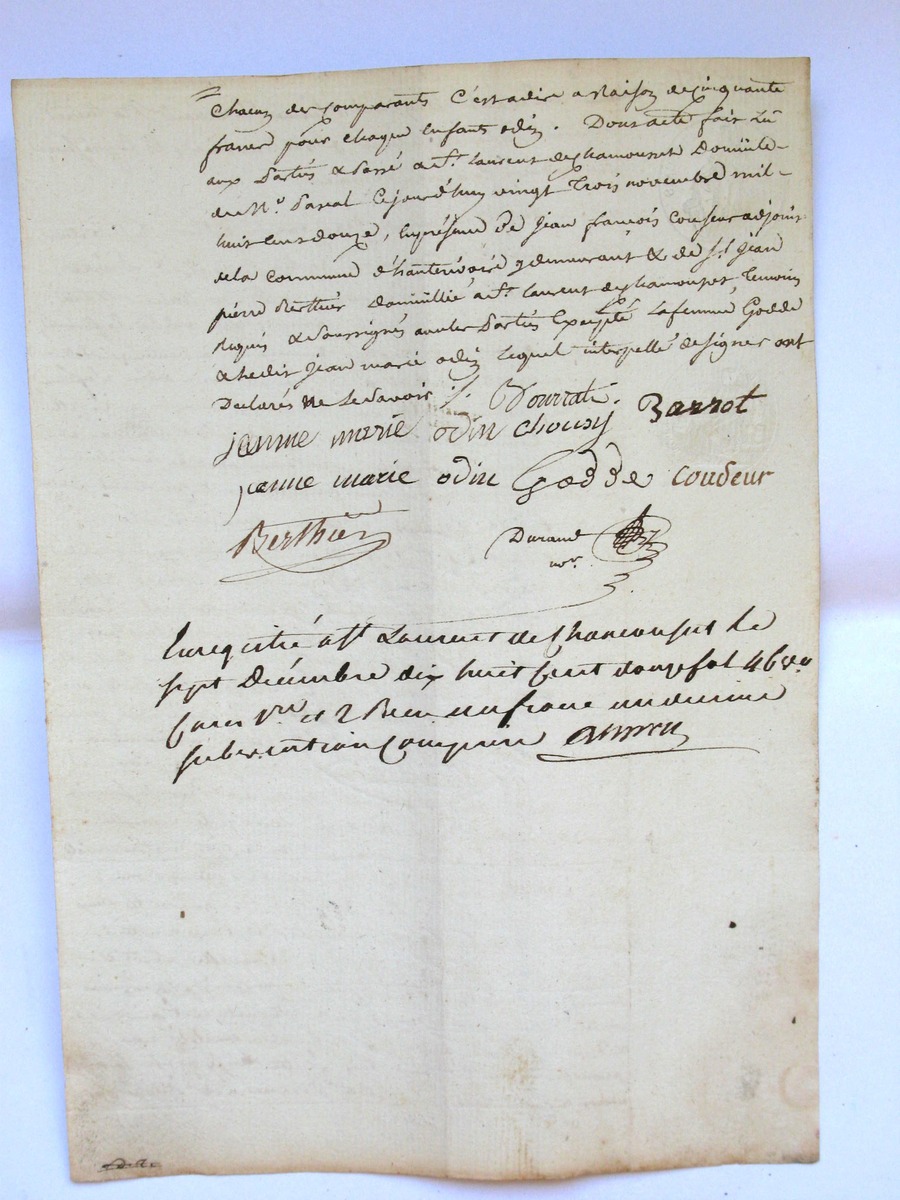 Chacun des comparants c'est a dire a Raison de cinquante
francs pour chaque enfants odin. Dont acte fait Lû
aux Parties & Passé a St. Laurent de chamousset Domicile
du Nr. Pascal Cejourd'huy vingt Trois novembre mil-
huit cens douze, En présence de jean françois Coudeur adjoint
de la Commune d'hauterivoire y demeurant & de Sr. Jean
pierre Berthier Domicillié a St. Laurent de chamousset, Temoins
Requis & soussignés avec les Parties Excepté La femme Godde
& ledit Jean marie odin Lequel interpellé de signer ont
Declarés ne Le Savoir
janne marie odin chouzy Barrot
janne marie odin Godde couдeur
Berthier Durand
nore.
Enregistré a St Laurent de Chamousset Le
sept Décembre dix huit cent douze fol 46 vo.
Cases 1re et 2 Reçu un franc un decime
subvention Comprise